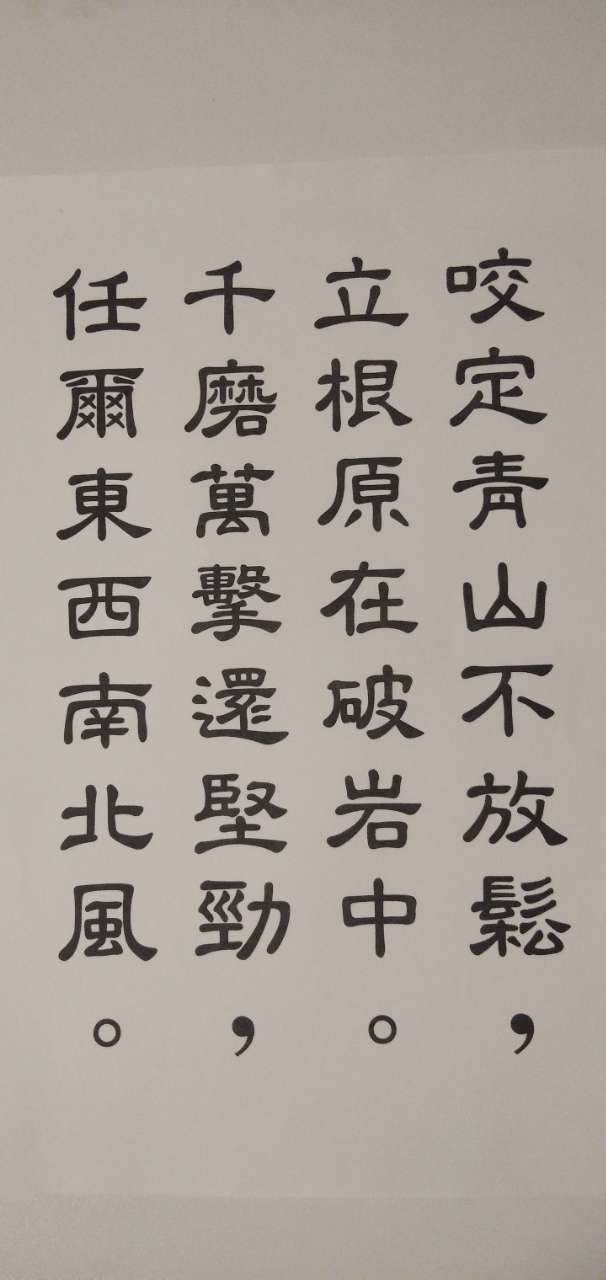 咬定青山不放鬆，
立根原在破岩中。
千磨萬擊還堅勁，
任爾東西南北風。